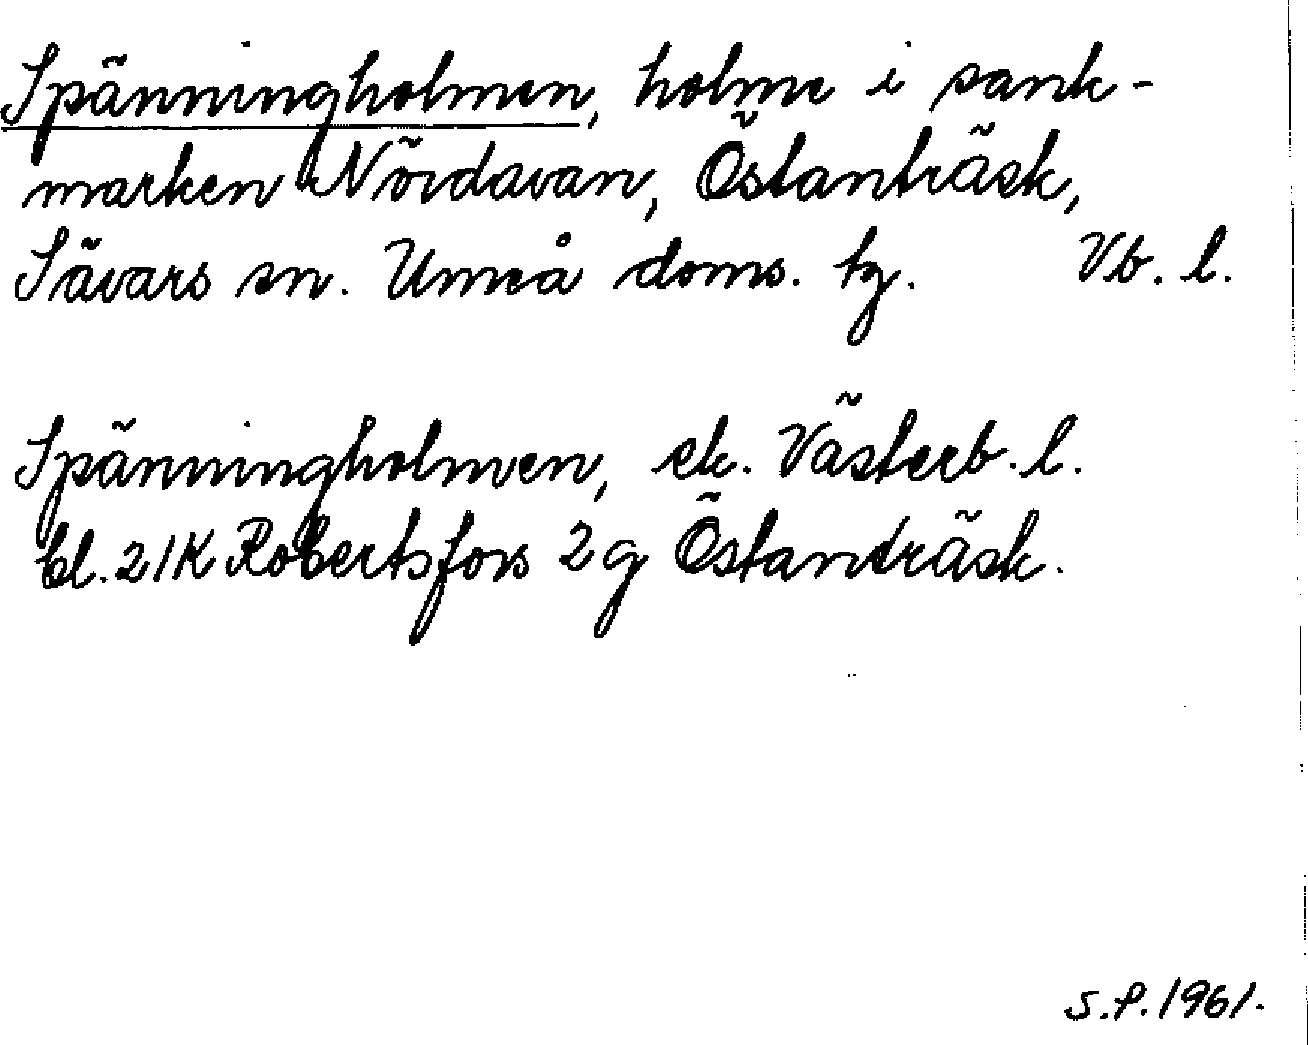 Spänningholmen, holme i sank-
marken Nördavan, Östanträsk,
Sävars sn. Umeå doms. tg. Vb. l.
Spänningholmen, ek. Västerb. l.
bl. 21K Robertsfors 2g Östanträsk.
S.P. 1961.